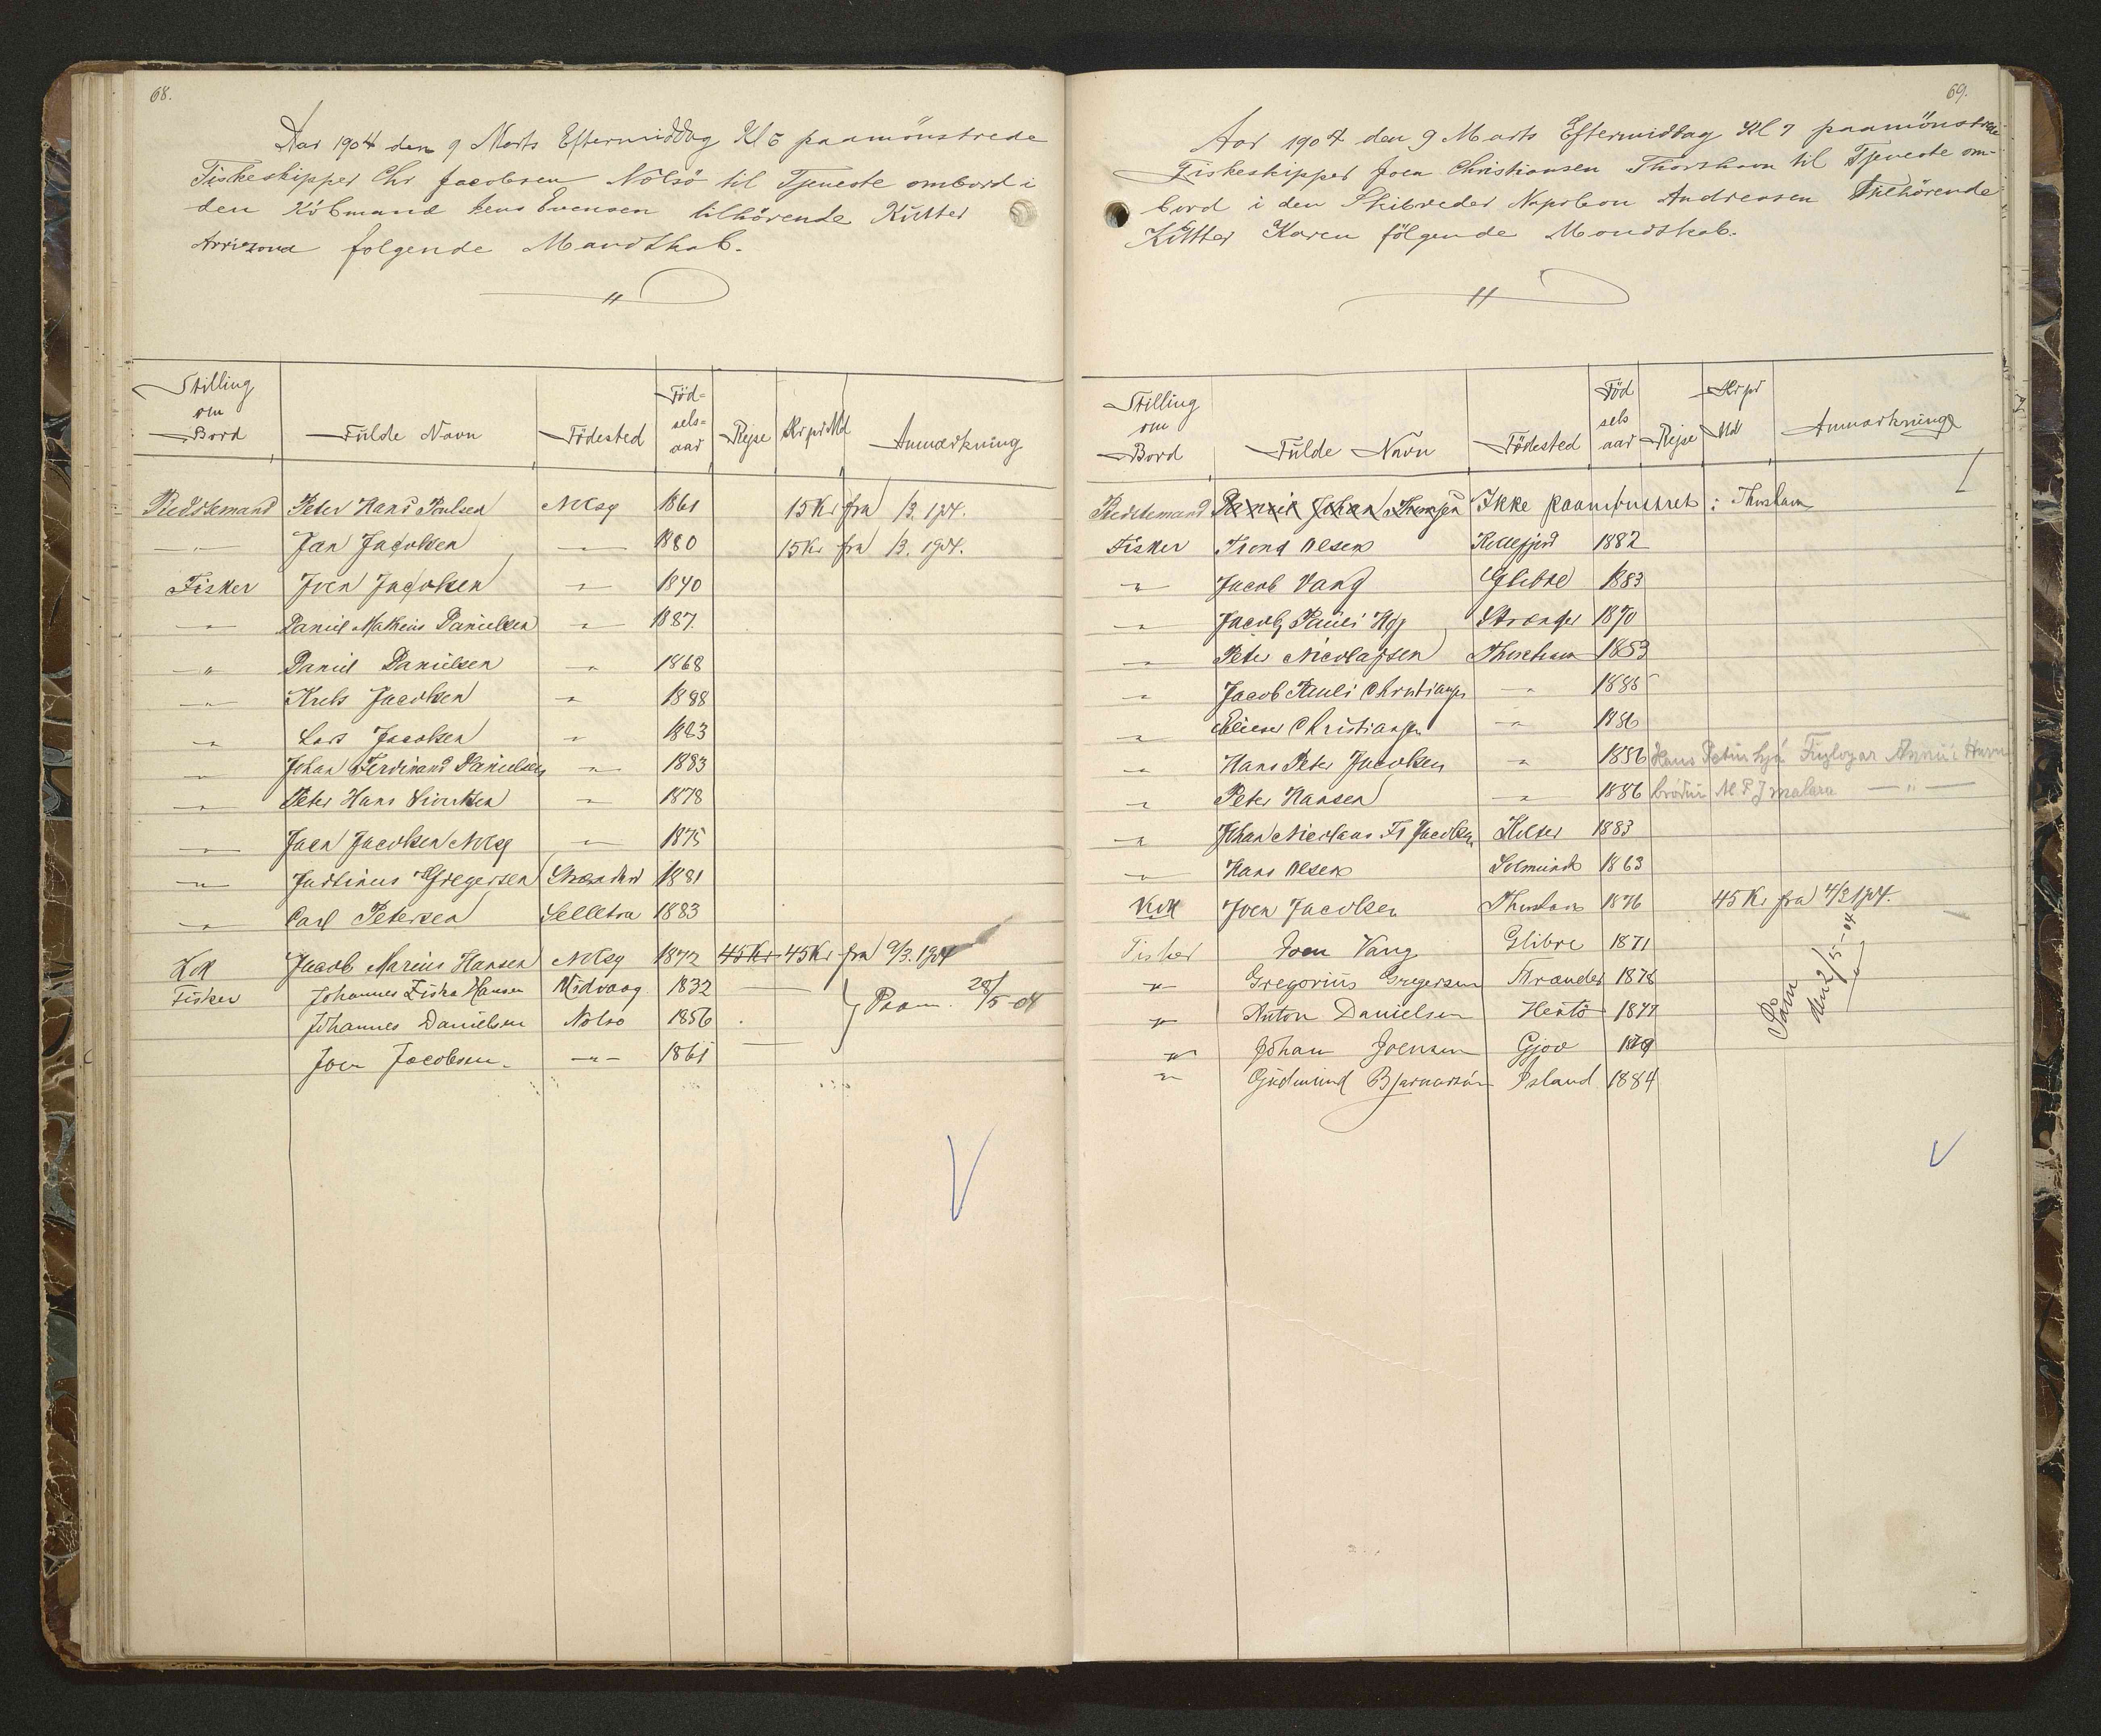 68.
Aar 1904 den 9 Marts Eftermiddag Kl 5 paamönstrede
Fiskeskipper Chr Jacobsen Nolsö til Tjeneste ombord i
den Köbmand Jens Evensen tilhörende Kutter
Arrizona folgende Mandskab.
"
Stilling om Bord Fulde Navn Födested Föd-sels-aar Rejse Kr pr Md Anmærkning
Bedstemand Peter Hans Poulsen Nolsø 1861 15 Kr fra 1/3. 1904.
" Jan Jacobsen " 1880 15 Kr fra 1/3. 1904.
Fisker Joen Jacobsen " 1840
" Daniel Matheus Danielsen " 1887
" Daniel Danielsen " 1868
" Jacobsen " 1888
" Lars Jacobsen " 1883
" Johan Ferdinand Danielsen " 1883
" Peter Hans " 1878
" Joen Jacobsen Nolsø " 1875
" Justinus Gregersen 1881
" Carl Petersen Selletra 1883
Kok Jacob Marius Hansen Nolsø 1872 45 Kr 45 Kr fra 9/3. 1904
Fisker Johannes Ziska Hansen Midvaag 1832
Johannes Danielsen Nolso 1856 Paam. 28/5-04
Joen Jacobsen. -"- 1861
69.
Aar 1904 den 9 Marts Eftermidtag Kl 7 paamönstrede
Fiskeskipper Joen Christiansen Thorshavn til Tjeneste om-
bord i den Skibreder Napoleon Andreasen Tilhörende
Kutter Karen fölgende Mandskab.
"
Stilling om Bord Fulde Navn Födested Föd sels aar Rejse Kr pr Md Anmærkning
Bedstemand Daniel Johan Thomsen Ikke paamönstret i Thorshavn
Fisker Trond Olsen Kollefjord 1882
" Jacob Vang Glibre 1883
" Jacob Pauli Højg Strænder 1870
" Peter Nicolajsen Thorshavn 1883
" Jacob Pauli Christiansen " 1885
" Elieser Christiansen " 1886
" Hans Peter Jacobsen " 1886 Hans Petur hjá
" Peter Hansen " 1886 bróðir M. P. J malara — " —
" Johan Nicolaus Fr Jacobsen Kolter 1883
" Hans Olsen Solmunde 1863
Kok Joen Jacobsen Thorshavn 1876 45 Kr fra 4/3 1904.
Fisher Joen Vang Glibre 1871
" Gregorius Gregersen Strander 1878
" Anton Danielsen Hestö 1877
" Johan Joensen Gjov 1879
" Gudmund Bjarnarson Island 1884
Paam
den 2/5-04